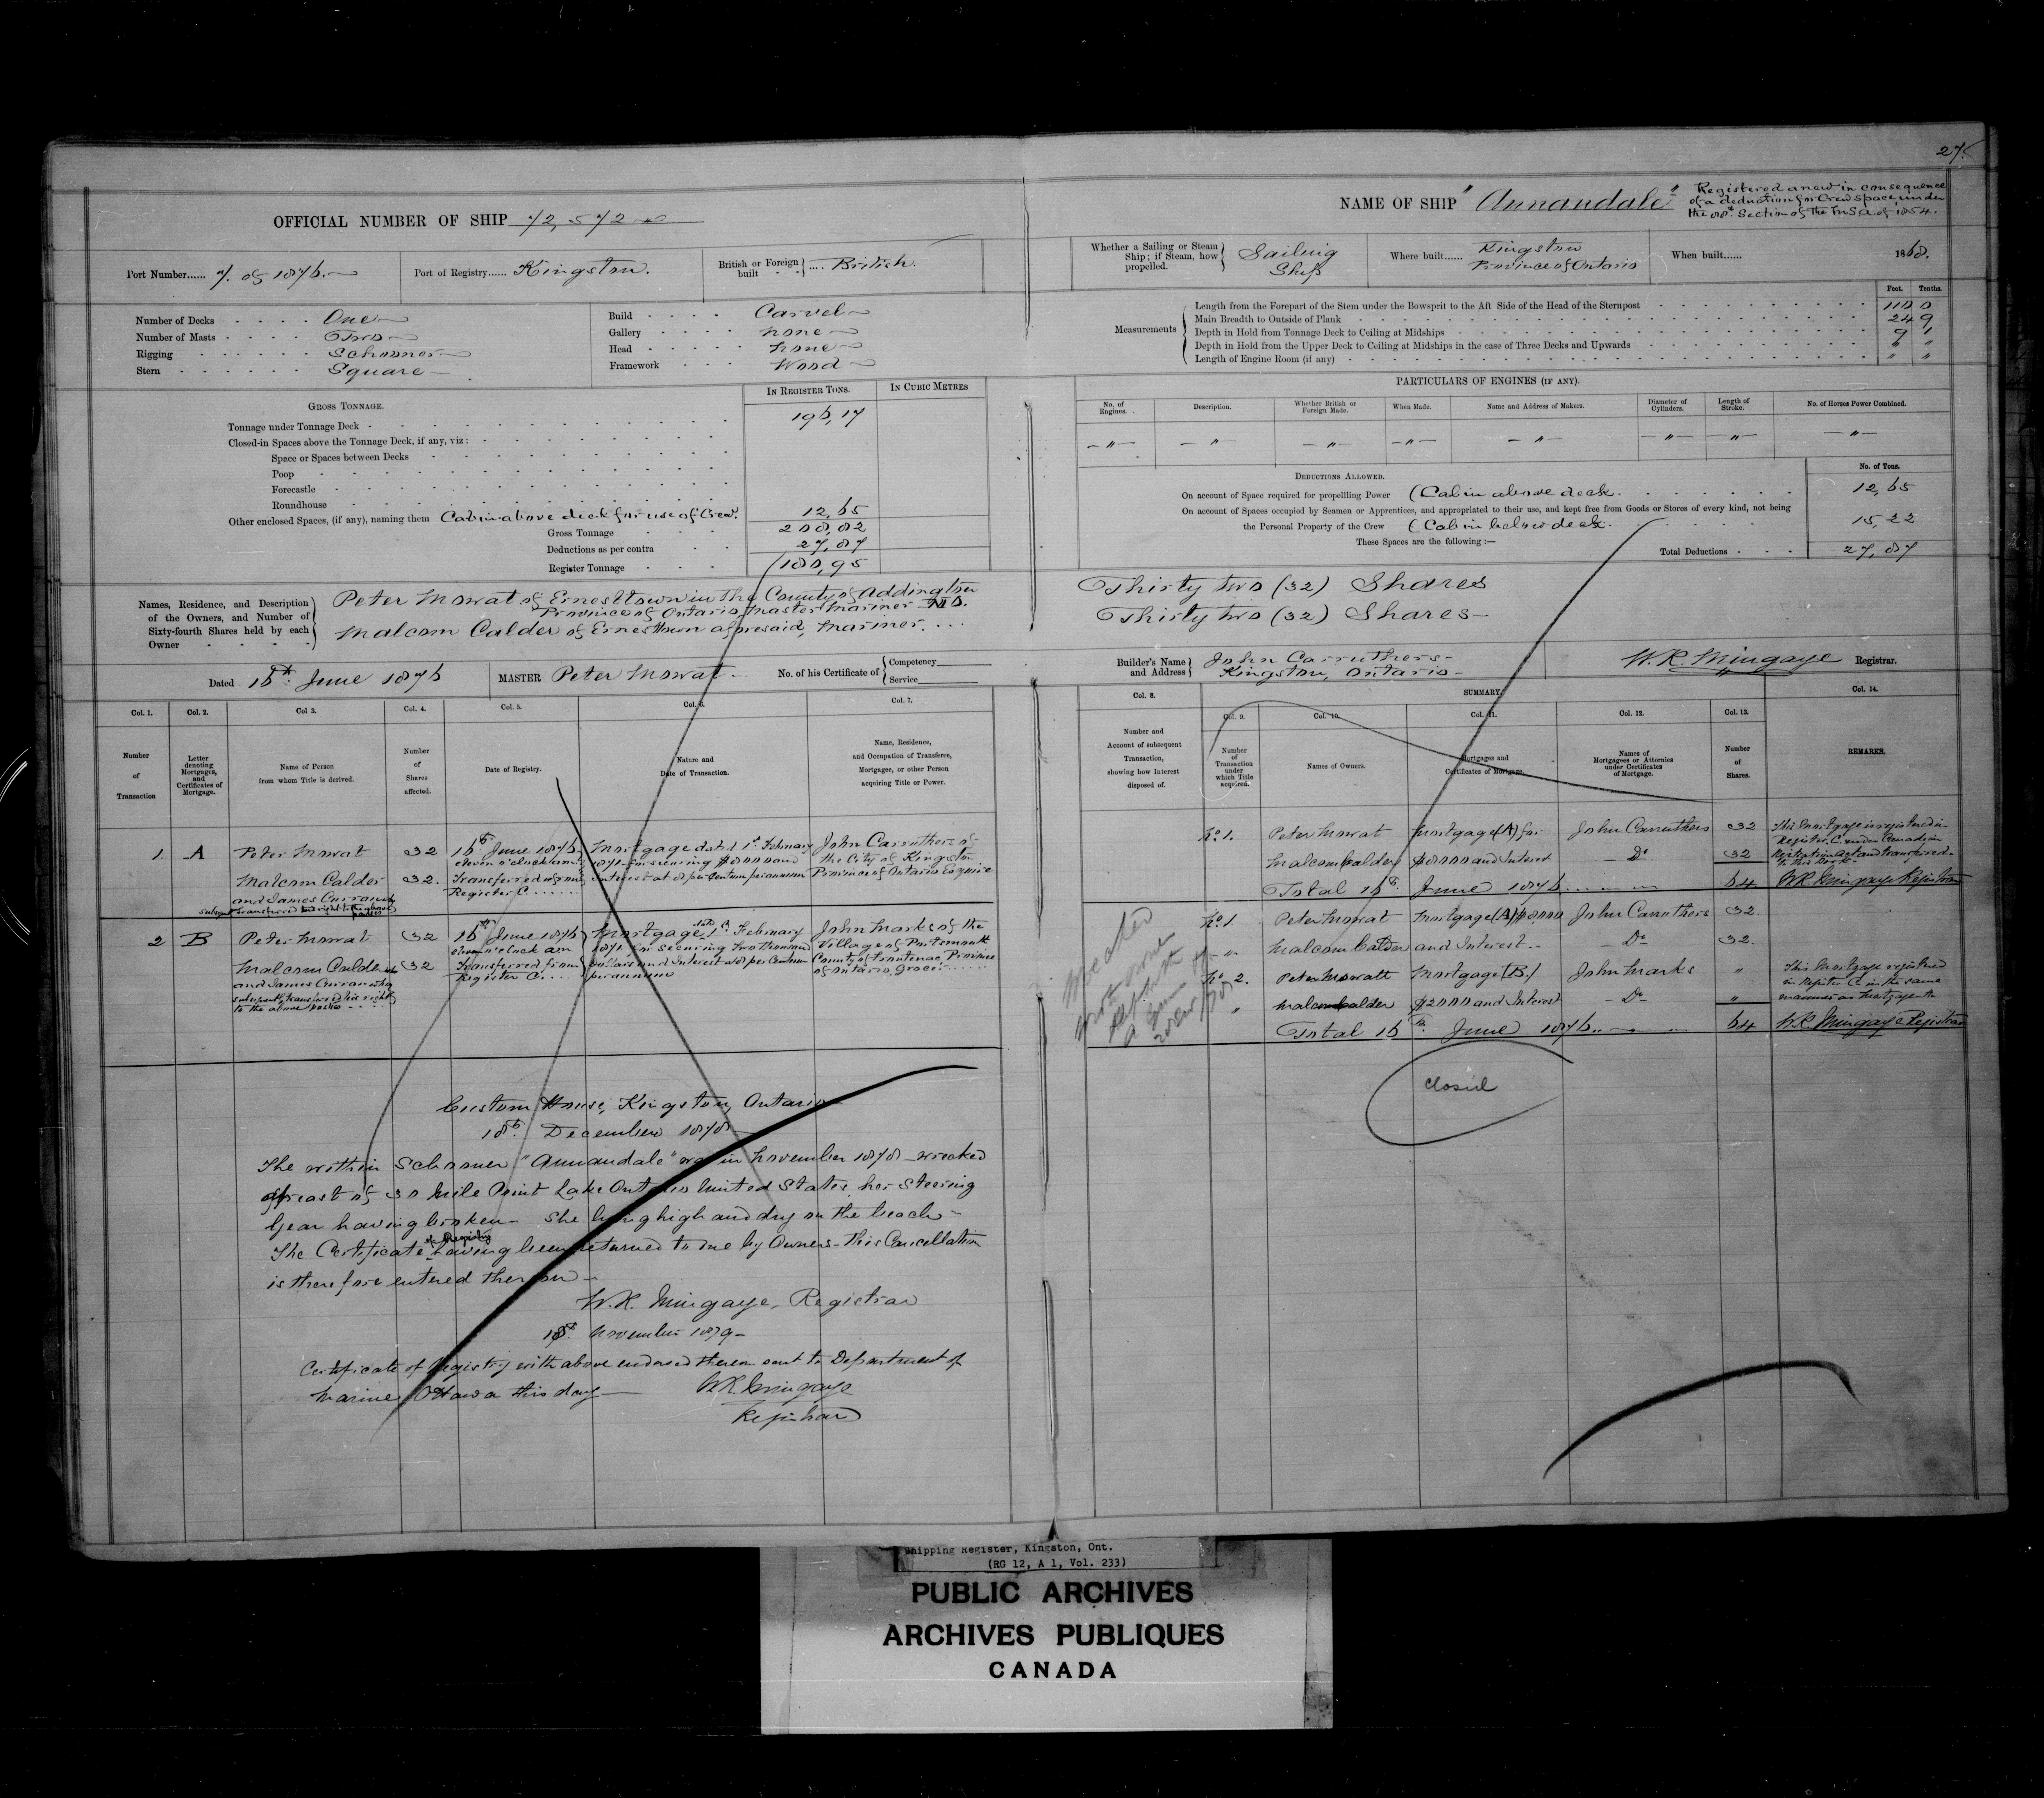 OFFICIAL NUMBER OF SHIP 72,572
NAME OF SHIP "Annandale"
Registered anew in consequence
of a deduction for Crew space, under
the Section of the M S A of 1854.
Port Number...... 7. of 1876.
Port of Registry...... Kingston.
British or Foreign built .... British.
Whether a Sailing or Steam Ship; if Steam, how propelled. Sailing Ship
Where built...... Kingston Province of Ontario
When built...... 1868.
Number of Decks One
Number of Masts Two
Rigging Schooner
Stern Square
Build Carvel
Gallery none
Head none
Framework Wood
Measurements
Feet. Tenths.
Length from the Forepart of the Stem under the Bowsprit to the Aft Side of the Head of the Sternpost 110 0
Main Breadth to Outside of Plank 24 9
Depth in Hold from Tonnage Deck to Ceiling at Midships 9 1
Depth in Hold from the Upper Deck to Ceiling at Midships in the case of Three Decks and Upwards " "
Length of Engine Room (if any) " "
GROSS TONNAGE.
IN REGISTER TONS. IN CUBIC METRES
Tonnage under Tonnage Deck 196,17
Closed-in Spaces above the Tonnage Deck, if any, viz:
Space or Spaces between Decks
Poop
Forecastle
Roundhouse
Other enclosed Spaces, (if any), naming them Cabin above deck for use of Crew. 12,65
Gross Tonnage 208,82
Deductions as per contra 27,87
Register Tonnage 180,95
PARTICULARS OF ENGINES (IF ANY).
No. of Engines. Description. Whether British or Foreign Made. When Made. Name and Address of Makers. Diameter of Cylinders. Length of Stroke. No. of Horses Power Combined.
—"— —"— —"— —"— —"— —"— —"— —"—
DEDUCTIONS ALLOWED. No. of Tons.
On account of Space required for propelling Power (Cabin above deck. 12,65
On account of Spaces occupied by Seamen or Apprentices, and appropriated to their use, and kept free from Goods or Stores of every kind, not being
the Personal Property of the Crew (Cabin below deck. 15,22
These Spaces are the following:—
Total Deductions 27,87
Names, Residence, and Description of the Owners, and Number of Sixty-fourth Shares held by each Owner
Peter Mowat of Ernesttown in the County of Addington
Province of Ontario, Master Mariner
Malcom Calder of Ernesttown aforesaid, Mariner.
Thirty two (32) Shares
Thirty two (32) Shares
Dated 16th June 1876
MASTER Peter Mowat
No. of his Certificate of Competency Service
Builder's Name and Address John Carruthers Kingston, Ontario
W. R. Mingaye Registrar.
Col. 1. Col. 2. Col 3. Col. 4. Col. 5. Col. 6. Col. 7.
Number of Transaction
Letter denoting Mortgages, and Certificates of Mortgage.
Name of Person from whom Title is derived.
Number of Shares affected.
Date of Registry.
Nature and Date of Transaction.
Name, Residence, and Occupation of Transferee, Mortgagee, or other Person acquiring Title or Power.
Col. 8. SUMMARY. Col. 14.
Col. 9. Col. 10. Col. 11. Col. 12. Col. 13.
Number and Account of subsequent Transaction, showing how Interest disposed of.
Number of Transaction under which Title acquired.
Names of Owners.
Mortgages and Certificates of Mortgage.
Names of Mortgagees or Attornies under Certificates of Mortgage.
Number of Shares.
REMARKS.
1. A Peter Mowat 32
Malcom Calder 32.
and James Curran
16th June 1876
eleven o'clock am
Transferred from
Register C
Mortgage dated 1st February
1871 for securing $8000 and
interest at 8 per Centum per annum
John Carruthers of
the City of Kingston
Province of Ontario Esquire
2 B Peter Mowat 32
Malcom Calder 32
and James Curran who
subsequently transferred his right
to the above parties
16th June 1876
eleven o'clock am
Transferred from
Register C.
Mortgage February
1871 for securing two thousand
dollars and Interest at 8 per Centum
per annum
John Marks of the
Village of Portsmouth
County of Frontenac Province
of Ontario, Grocer
No 1. Peter Mowat Mortgage (A) for John Carruthers 32
Malcom Calder $8000 and Interest Do 32
Total 16th June 1876 64
This Mortgage is registered in
Register C. under Canadian
W.R. Mingaye Registrar
No 1. Peter Mowat Mortgage (A) $8000 John Carruthers 32.
" Malcom Calder and Interest Do 32.
No 2. Peter Mowatt Mortgage (B) John Marks "
" Malcom Calder $2000 and Interest Do "
Total 16th June 1876 64
This Mortgage registered
in Register C in the same
manner as Mortgage A
W.R. Mingaye Registrar
Closed
Custom House, Kingston, Ontario
18th December 1878
The within Schooner "Annandale" was in November 1878 wrecked
abreast of 30 Mile Point Lake Ontario United States, her Steering
Gear having broken - She lying high and dry on the beach -
The Certificate of Registry having been returned to me by Owners - this Cancellation
is therefore entered thereon -
W.R. Mingaye, Registrar
18th November 1879 -
Certificate of Registry with above endorsed thereon sent to Department of
Marine Ottawa this day — W.R. Mingaye
Registrar
Shipping Register, Kingston, Ont.
(RG 12, A 1, Vol. 233)
PUBLIC ARCHIVES
ARCHIVES PUBLIQUES
CANADA